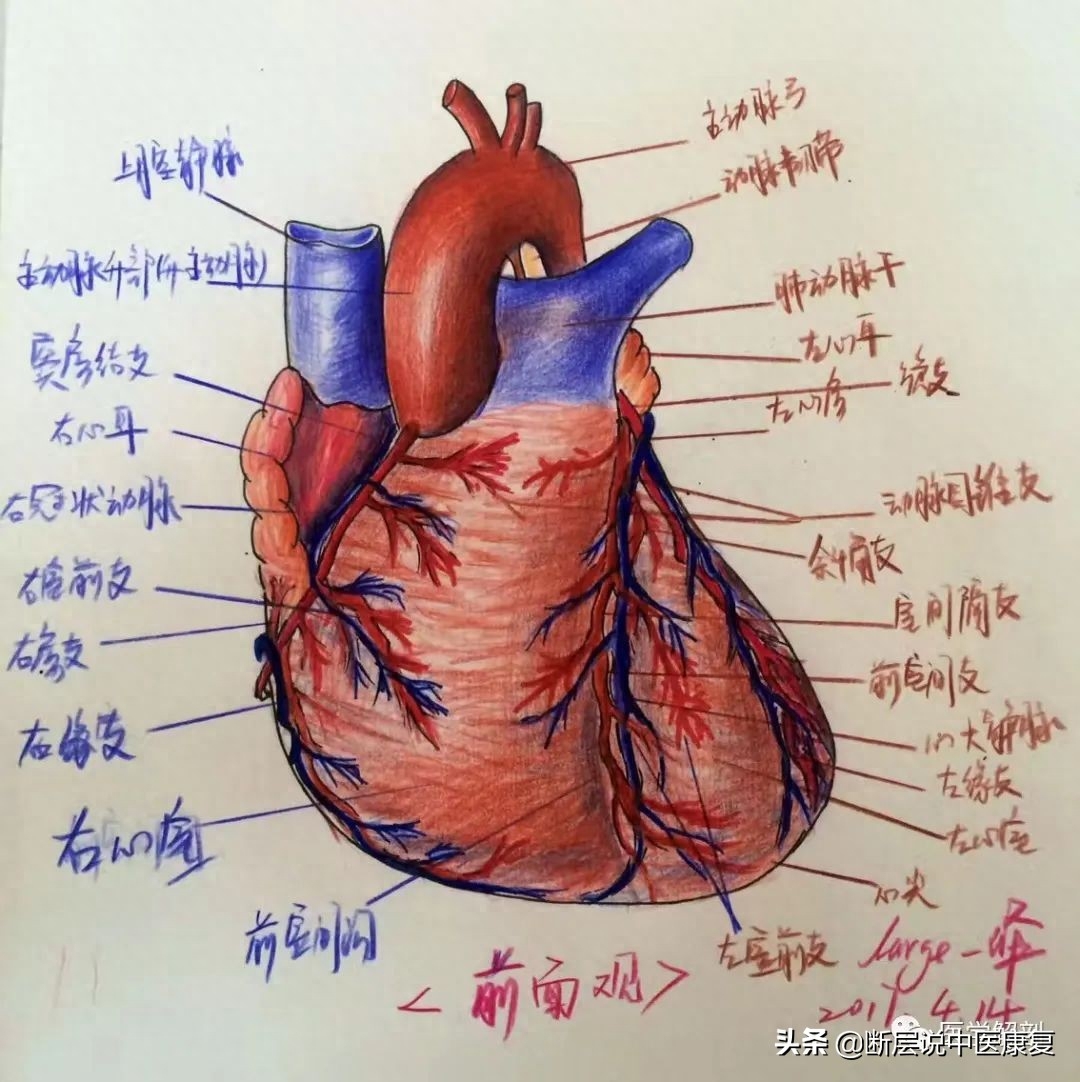 主动脉弓
上腔静脉
动脉韧带
主动脉升部(升主动脉)
肺动脉干
窦房结支
左心耳
旋支
左心房
右心耳
右冠状动脉
动脉圆锥支
斜角支
右室前支
室间隔支
右房支
前室间支
右缘支
心大静脉
左缘支
右心室
左心室
心尖
前室间沟
左室前支
<前面观>
large-华
4.14
医学解剖
头条 @断层说中医康复